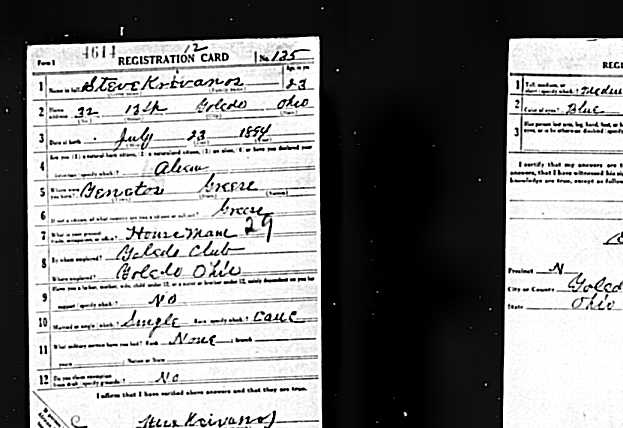 4614 12
Form 1 REGISTRATION CARD No. 135
1 Name in full Steve Krivanos Age, in yrs. 23
2 Home address 32 13th Toledo Ohio
3 Date of birth July 23 1894
4 Are you (1) a natural born citizen, (2) a naturalized citizen, (3) an alien, (4) or have you declared your
intention (specify which)? Alien
5 Where were you born? Greese
6 If not a citizen, of what country are you a citizen or subject? Greese
7 What is your present trade, occupation, or office? House Man 29
8 By whom employed? Toledo Club
Where employed? Toledo Ohio
9 Have you a father, mother, wife, child under 12, or a sister or brother under 12, solely dependent on you for
support (specify which)? No
10 Married or single (which)? Single Race (specify which)? Cauc
11 What military service have you had? Rank None ; branch
years ; Nation or State
12 Do you claim exemption from draft (specify grounds)? No
I affirm that I have verified above answers and that they are true.
Steve Krivanos
REGI
1 Tall, medium, or short (specify which)? Mediu
2 Color of eyes? Blue
3 Has person lost arm, leg, hand, foot, or b
I certify that my answers are t
answers, that I have witnessed his si
knowledge are true, except as follow
Precinct N
City or County Toled
State Ohio